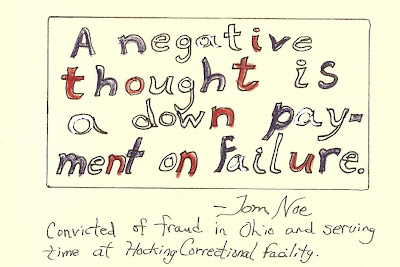 A negative
thought is
a down pay-
ment on failure.
-Tom Noe
Convicted of fraud in Ohio and serving
time at Hocking Correctional facility.